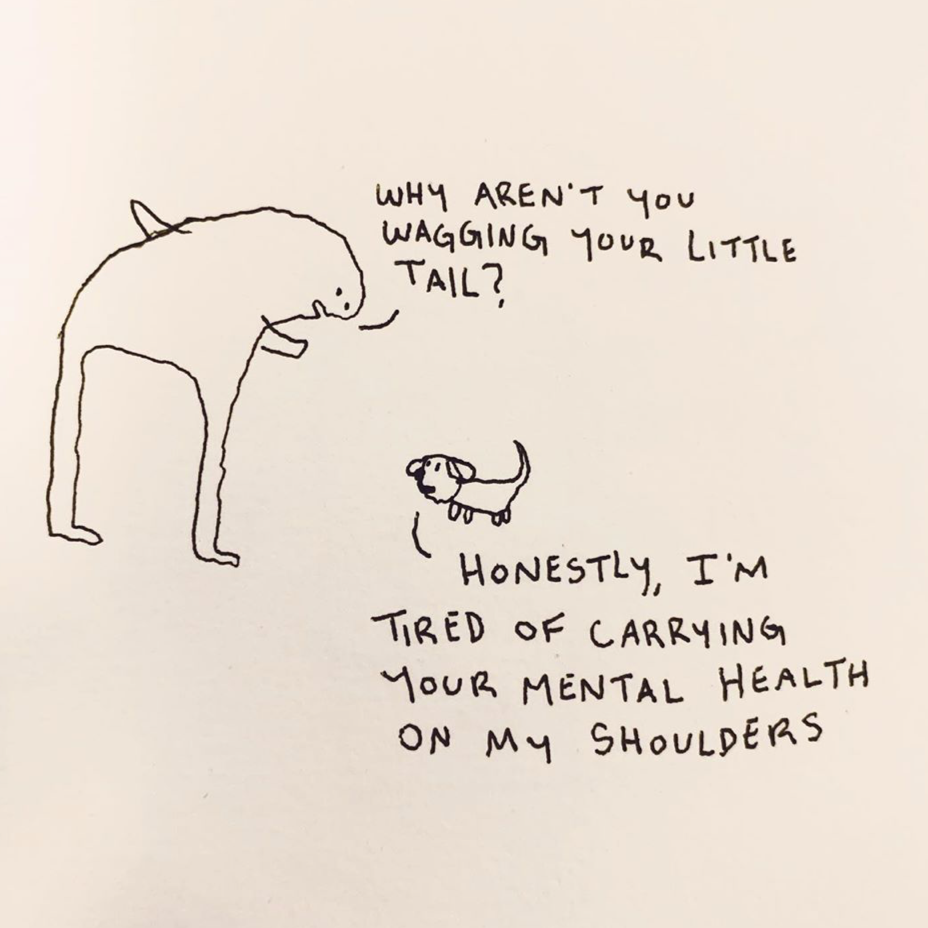 WHY AREN'T YOU
WAGGING YOUR LITTLE
TAIL?
HONESTLY, I'M
TIRED OF CARRYING
YOUR MENTAL HEALTH
ON MY SHOULDERS